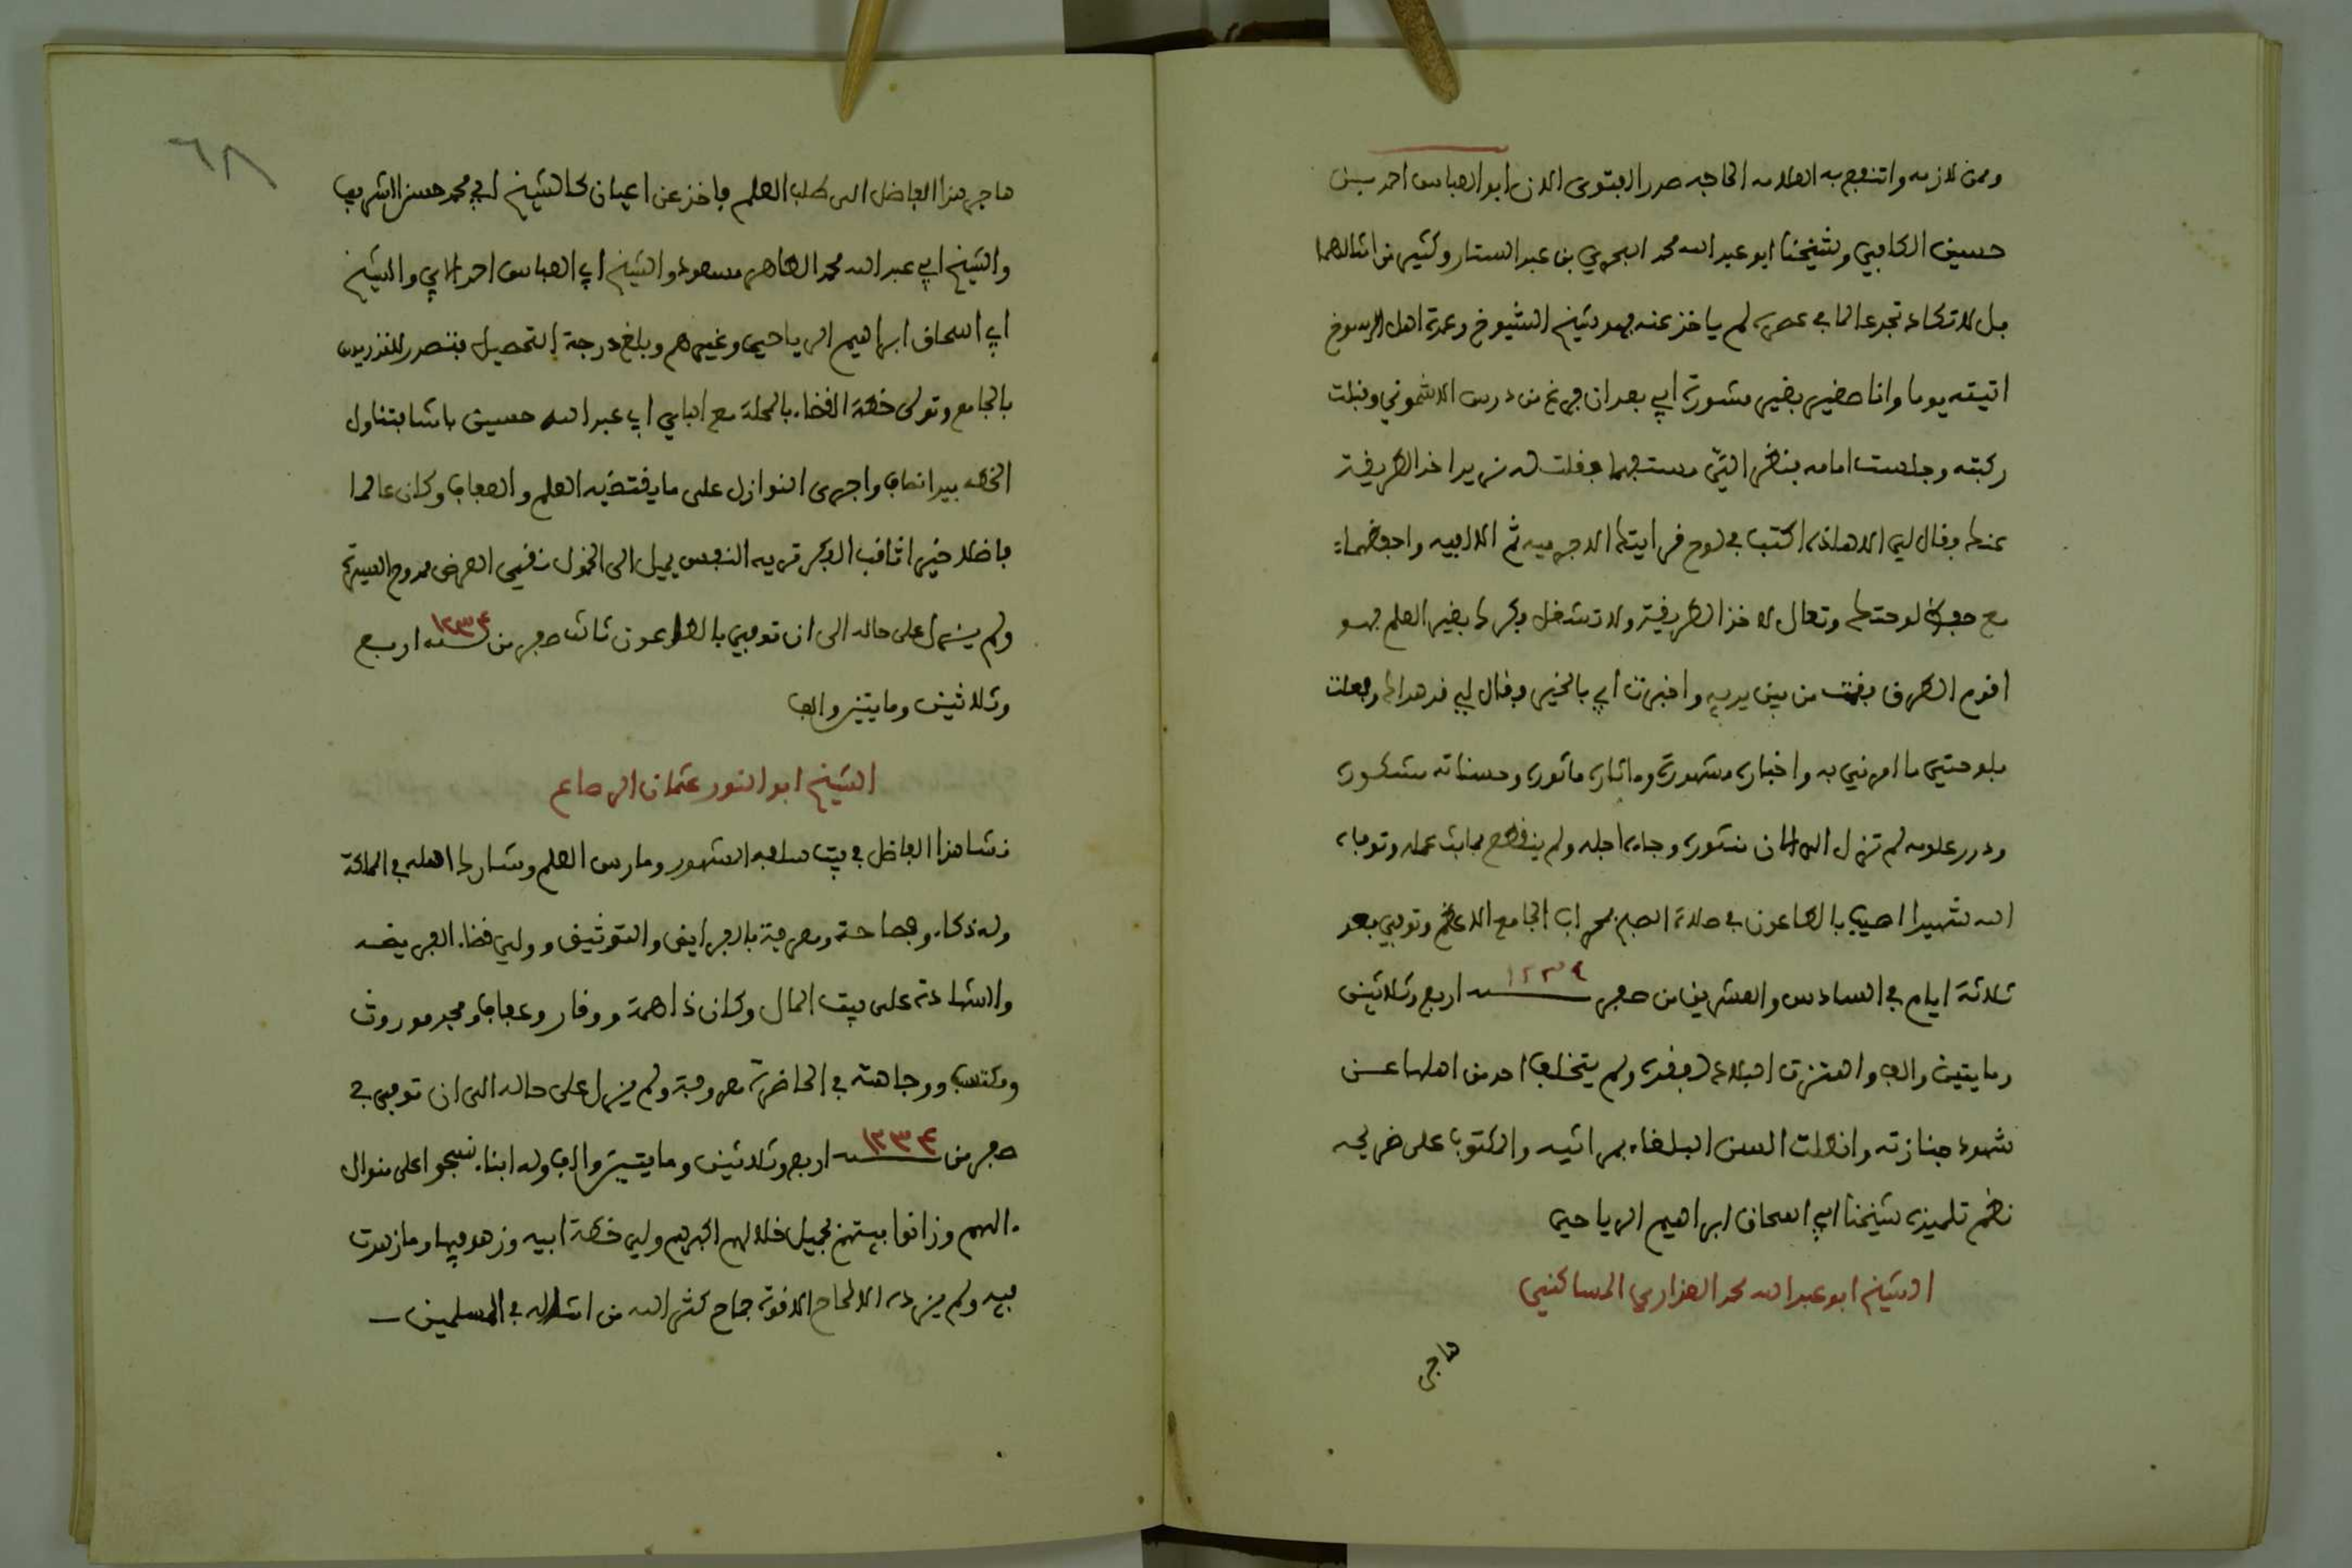 وممن لازمه وانتفع به العلامة الحاجه صدر الفتوى الان ابو العباس احمد بن
حسين الكافي وشيخنا ابو عبد الله محمد البحري بن عبد الستار وكثير من امثالهما
بل لا تكاد تجد عالما في عصره لم ياخذ عنه فهو شيخ الشيوخ وعمدة اهل الرسوخ
اتيته يوما وانا صغير بغير مشورة ابي بعد ان فرغ من درس الاشموني وقبلت
ركبته وجلست امامه بنظر الي مستفهما فقلت له نريد اخذ الطريقة
عنك فقال لي الان هاذه اكتب في لوح قرايتك الاجرمية ثم الالفية واحفظهما
مع حفظ لوحتك وتعال لاخذ الطريقة ولا تشغل فكرك بغير العلم فهو
اقوم الطرق فقمت من بين يديه واخبرت ابي بالخير فقال لي قد هداك وفعلت
بلوحتي ما امرني به واخباره مشهورة ومآثاره ماثورة وحسناته مشكورة
ودرر علومه لم تزل الى الان منثورة وجاءه اجله ولم ينقطع بمماته عمله وتوفاه
الله شهيدا اصيب بالطاعون في صلاة الصبح بمحراب الجامع الاعظم وتوفي بعد
ثلاثة ايام في السادس والعشرين من صفر سنة ١٢٣٤ اربع وثلاثين
ومايتين والف واهتزت البلاد لفقده ولم يتخلف احد من اهلها عن
شهود جنازته وانطلقت السن البلغاء بمراثيه والمكتوب على ضريحه
نظم تلميذه شيخنا ابي اسحاق ابراهيم الرياحي
الشيخ ابو عبد الله محمد الهزاري المساكني
هاجر
٦٨
هاجر هذا الفاضل الى طلب العلم فاخذ عن اعيان كالشيخ ابي محمد حسن الشريف
والشيخ ابي عبد الله محمد الطاهر مسعود والشيخ ابي العباس احمد والشيخ
ابي اسحاق ابراهيم الرياحي وغيرهم وبلغ درجة التحصيل فتصدر للتدريس
بالجامع وتولى خطة القضاء بالمحلة مع الباي ابي عبد الله حسين باشا فتناول
الخطة بيد انصاف واجرى النوازل على ما يقتضيه العلم والعفاف وكان عالما
فاضلا خيرا ثاقب الفكر نزيه النفس يميل الى الخمول نقي العرض ممدوح السيرة
ولم يزل على حاله الى ان توفي بالطاعون ثالث صفر من سنة ١٢٣٤ اربع
وثلاثين ومايتين والف
الشيخ ابو النور عثمان الرصاع
نشا هذا الفاضل في بيت سلفه المشهور ومارس العلم وشارك اهله في الملكة
وله ذكاء وفصاحة ومعرفة بالفرايض والتوثيق وولي قضاء الفريضة
والشهادة على بيت المال وكان ذا همة ووقار وعفاف ومجد موروث
ومكتسب ووجاهته في الحاضرة معروفة ولم يزل على حاله الى ان توفي في
صفر من سنة ١٢٣٤ اربع وثلاثين ومايتين والف وله ابناء نسجوا على منوال
الهم وزانوا بيتهم بجميل خلالهم اكبرهم ولي خطة ابيه وزهد فيها وما زهدت
فيه ولم يزده الالحاح الا قوة جماح كثر الله من امثاله في المسلمين